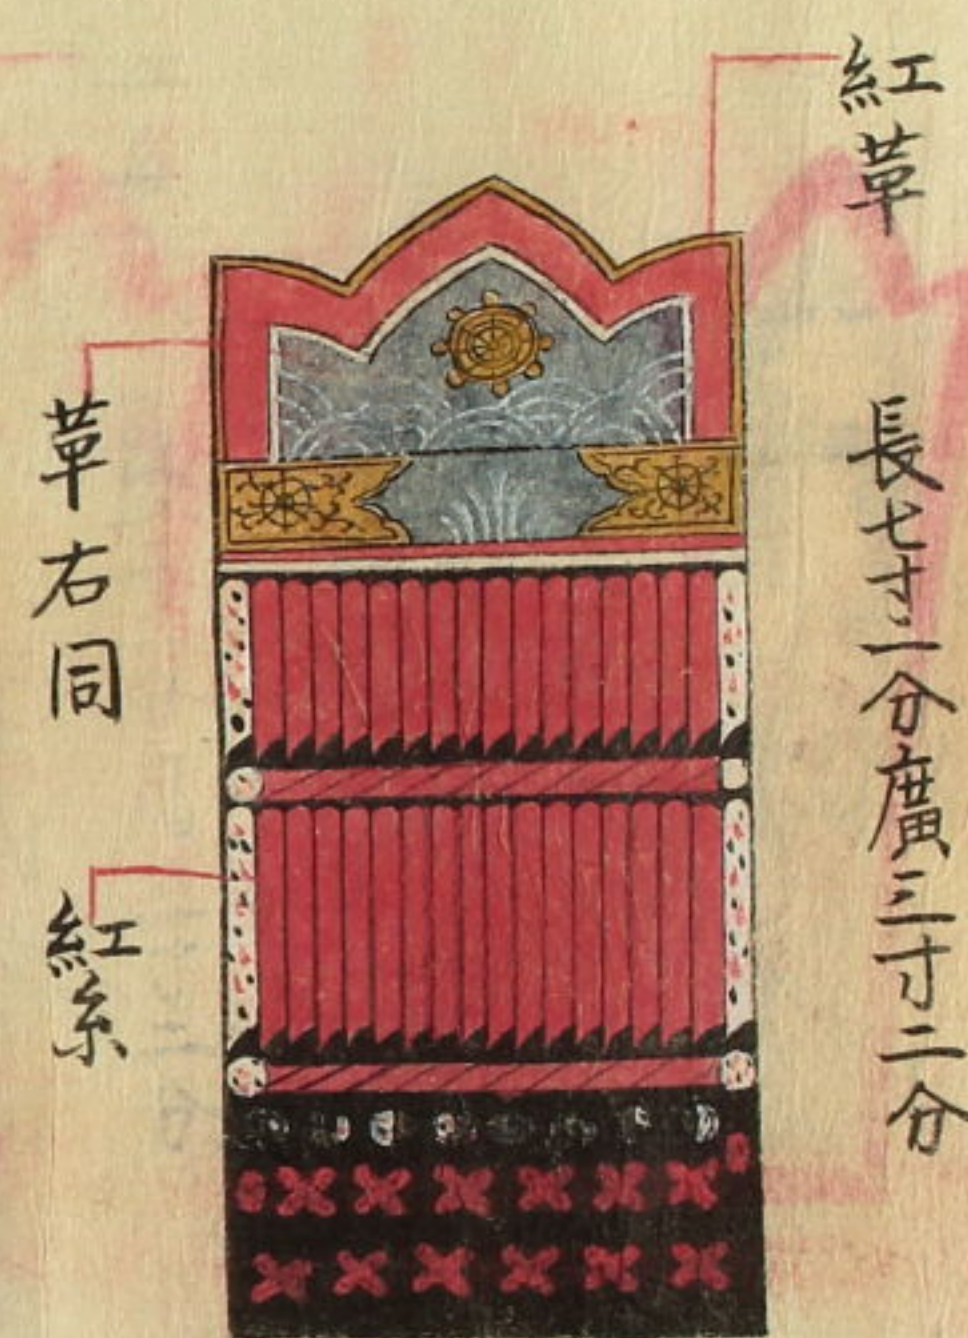 紅革
長七寸二分廣三寸二分
革右同
紅糸